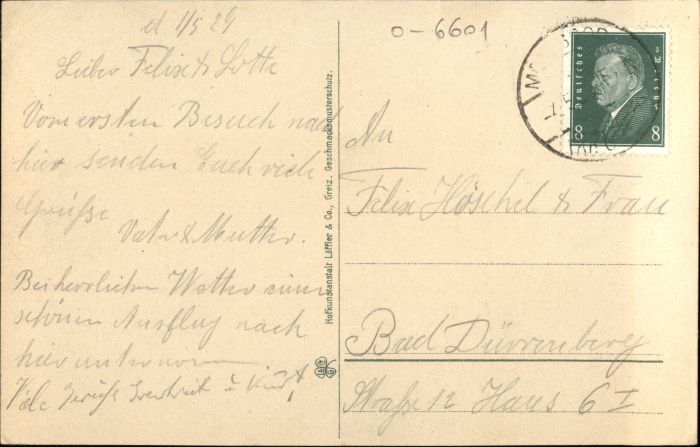 d. 1/5 29
Liebe Felix & Lotte
Vom ersten Besuch nach
hier senden Euch viele
Grüße
Vater & Mutter.
Bei herrlichen Wetter einen
schönen Ausflug nach
hier unternommen
Viele Grüße u Kurt
Hofkunstanstalt Löffler & Co., Greiz. Geschmacksmusterschutz.
0-6601
Deutsches Reich
8 8
An
Felix Höschel & Frau
Bad Dürrenberg
Straße 12 Haus 6 I